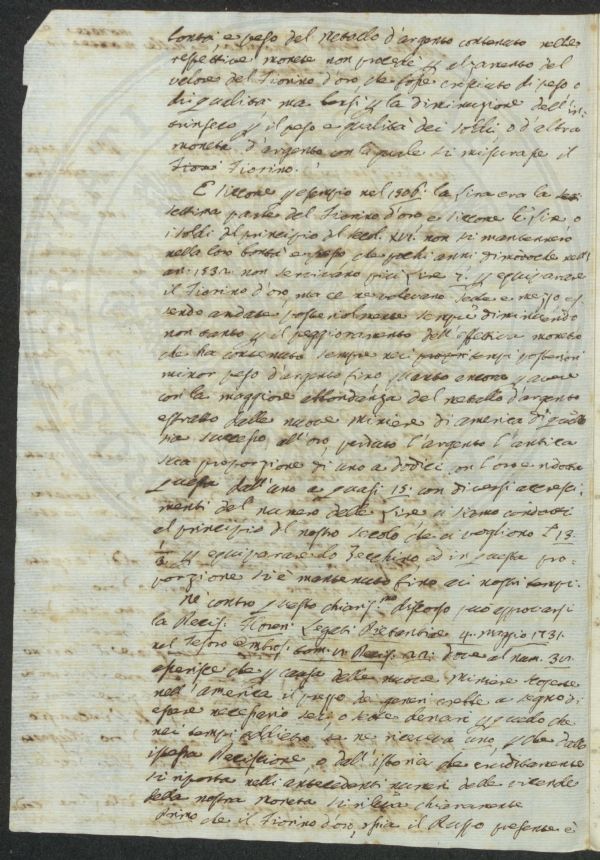 bontà, e peso del metallo d'argento contenuto nelle
respettive monete non procedè p alzamento del
valore del Fiorino d'oro, che fosse cresciuto di peso o
di qualità ma bensì p la diminuzione dell'in:
trinseco p il peso e qualità dei soldi, o d'altra
moneta d'argento con la quale si misurasse il
Fiorino.
E siccome p esempio nel 1506. la Lira era la
settima parte del Fiorino d'oro e siccome le Lire, o
i soldi del principio del secol. XVI. non si mantennero
nella loro bontà e peso che pochi anni dimodoche nell'
an. 1531. non servivano più Lire 7. p equiparare
il Fiorino d'oro, ma ce ne volevano sette e mezzo es
sendo andate posteriolmente sempre diminuendo
non tanto p il peggioramento dell'effettiva moneta
che ha contenuto sempre nei tempi posteriori
minor peso d'argento fino quanto ancora p avere
con la maggiore abbondanza del metallo d'argento
estratto dalle nuove miniere di america
successo all'oro, perduto l'argento l'antica
sua proporzione di uno a dodici con l'oro e ridotta
questa dall'uno a quasi 15. con diversi accresci
menti del numero delle Lire si siamo condotti
al principio del nostro secolo che ci vogliono L 13.
p equiparare lo Zecchino, ed in questa pro
porzione si è mantenuto fino ai nostri tempi.
Ne contro questo chiariss.mo discorso può opporsi
la Decis. Floren. Legati 4. maggio 1731.
nel Tesoro Ombros. tom. Decis. 22. dove al num. 30.
asserisce che p causa delle nuove miniere scoperte
nell'america il prezzo de generi crebbe a segno di
essere necessario sei, o sette denari p quello che
nei tempi addietro se ne riceveva uno, p che dalla
istessa Decisione, o dall'istoria che eruditamente
si riporta nelli antecedenti numeri delle vicende
della nostra moneta si rileva chiaramente
che il Fiorino d'oro, o sia il Ruspo presente è